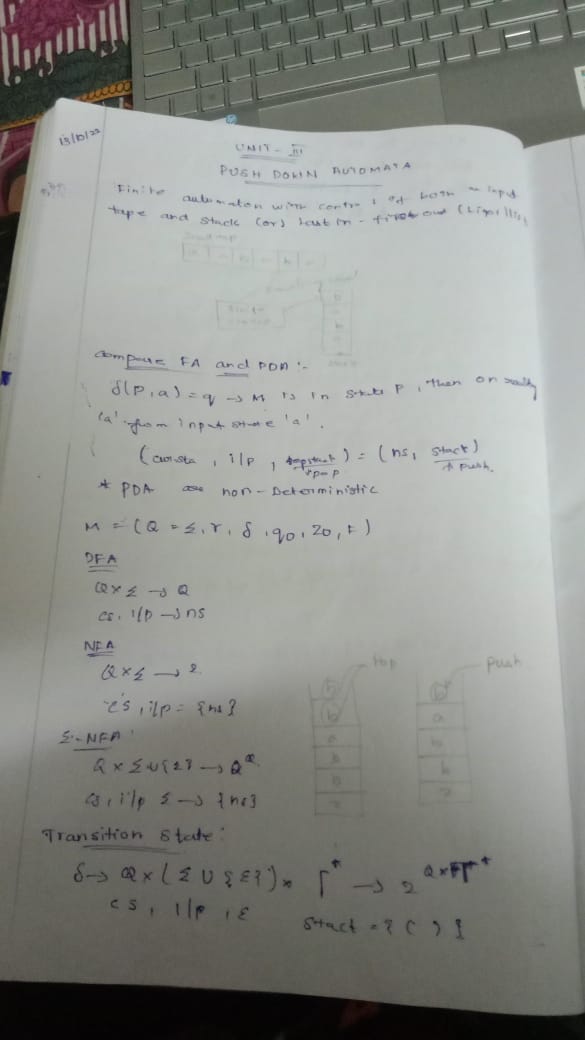 13/10/22
UNIT - III
PUSH DOWN AUTOMATA
Finite automaton with control of both an input
tape and stack (or) Last in - first out
compare FA and PDA :-
δ(P,a) = q → M is in state P, then on
'a' from input 'a'.
( , i/p , topstack ) = (ns, stack)
pop
push
* PDA are non-Deterministic
M = (Q = Σ, Γ, δ, q0, z0, F)
DFA
Q×Σ → Q
cs, i/p → ns
NFA
Q×Σ → 2
cs, i/p = {ns}
top
push
b
b
a
b
b
b
a
b
b
Σ-NFA
Q×Σ∪{Σ} →
cs, i/p Σ → {ns}
Transition State:
δ → Q×(Σ∪{ε})× Γ* → 2 Q×Γ*
cs, i/p, ε
stack = { ( ) }